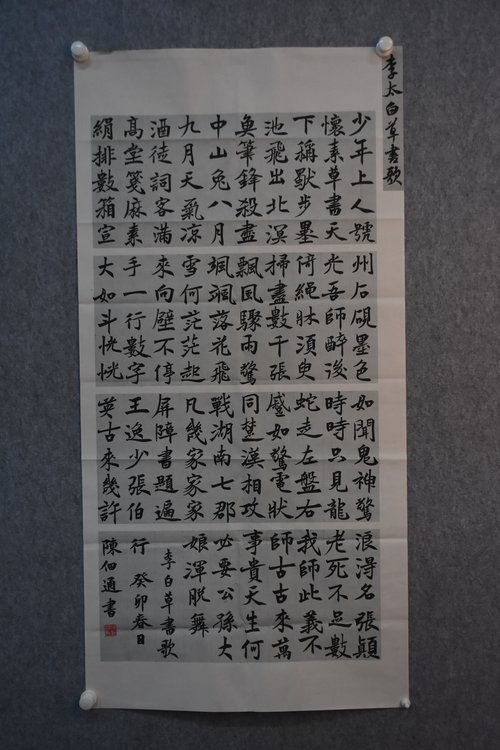 李太白草書歌
少年上人號
懷素草書天
下稱獨步墨
池飛出北溟
魚筆鋒殺盡
中山兔八月
九月天氣凉
酒徒詞客滿
高堂箋麻素
絹排數箱宣
州石硯墨色
光吾師醉後
倚繩牀須臾
掃盡數千張
飄風驟雨驚
颯颯落花飛
雪何茫茫起
來向壁不停
手一行數字
大如斗恍恍
如聞鬼神驚
時時只見龍
蛇走左盤右
蹙如驚電狀
同楚漢相攻
戰湖南七郡
凡幾家家家
屏障書題遍
王逸少張伯
英古來幾許
浪淂名張顛
老死不足數
我師此義不
師古古來萬
事貴天生何
必要公孫大
娘渾脫舞
李白草書歌
行 癸卯春日
陳佃通書